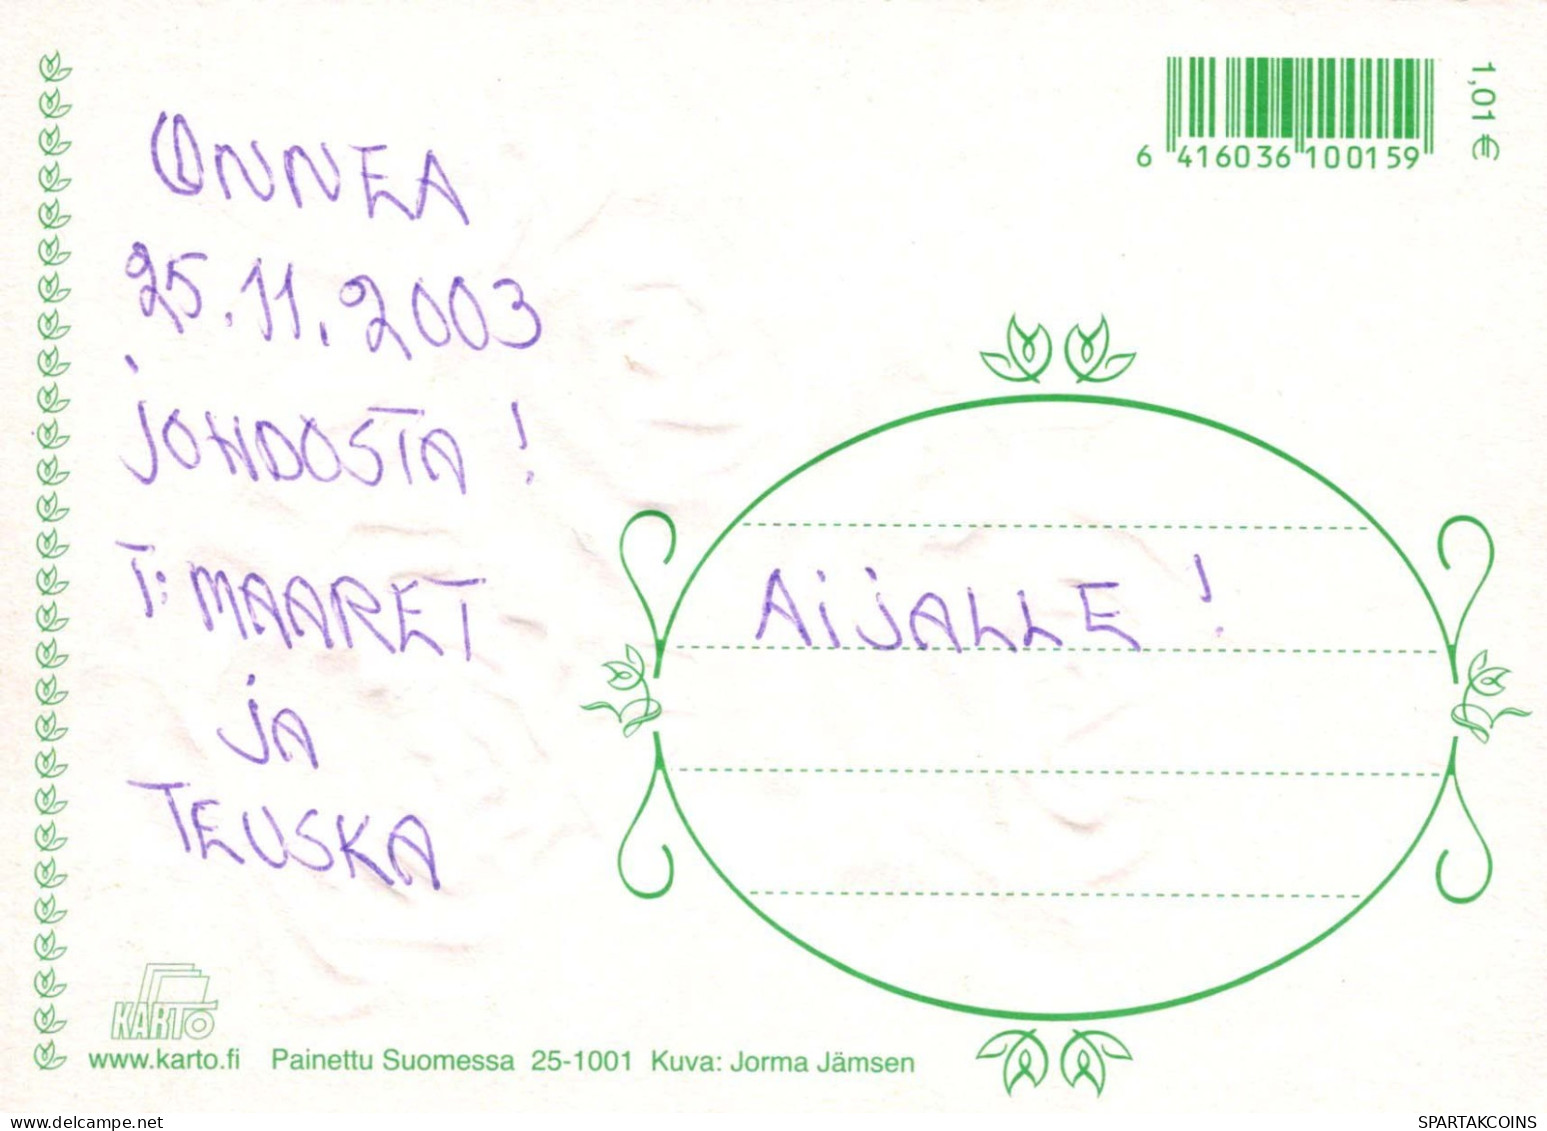 ONNEA
25.11.2003
JOHDOSTA !
T: MAARET
JA
TEUSKA
AIJALLE !
6 416036 100159
1,01 €
KARTO
www.karto.fi Painettu Suomessa 25-1001 Kuva: Jorma Jämsen
www.delcampe.net
SPARTAKCOINS